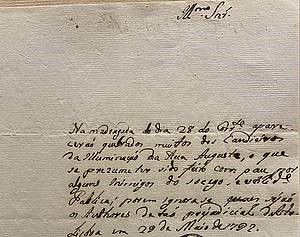 Illmo Snr.
Na madrugada do dia 28 do Corrte. apare
cerão quebrados muitos dos Candieiros
da Illuminação da Rua Augusta, o que
se prezume ter sido feito com pau por
alguns inimigos do socego
Publica, porem ignora-se quaes sejão
os Authores de tão prejudicial
Lisboa em 29 de Maio de 1792.